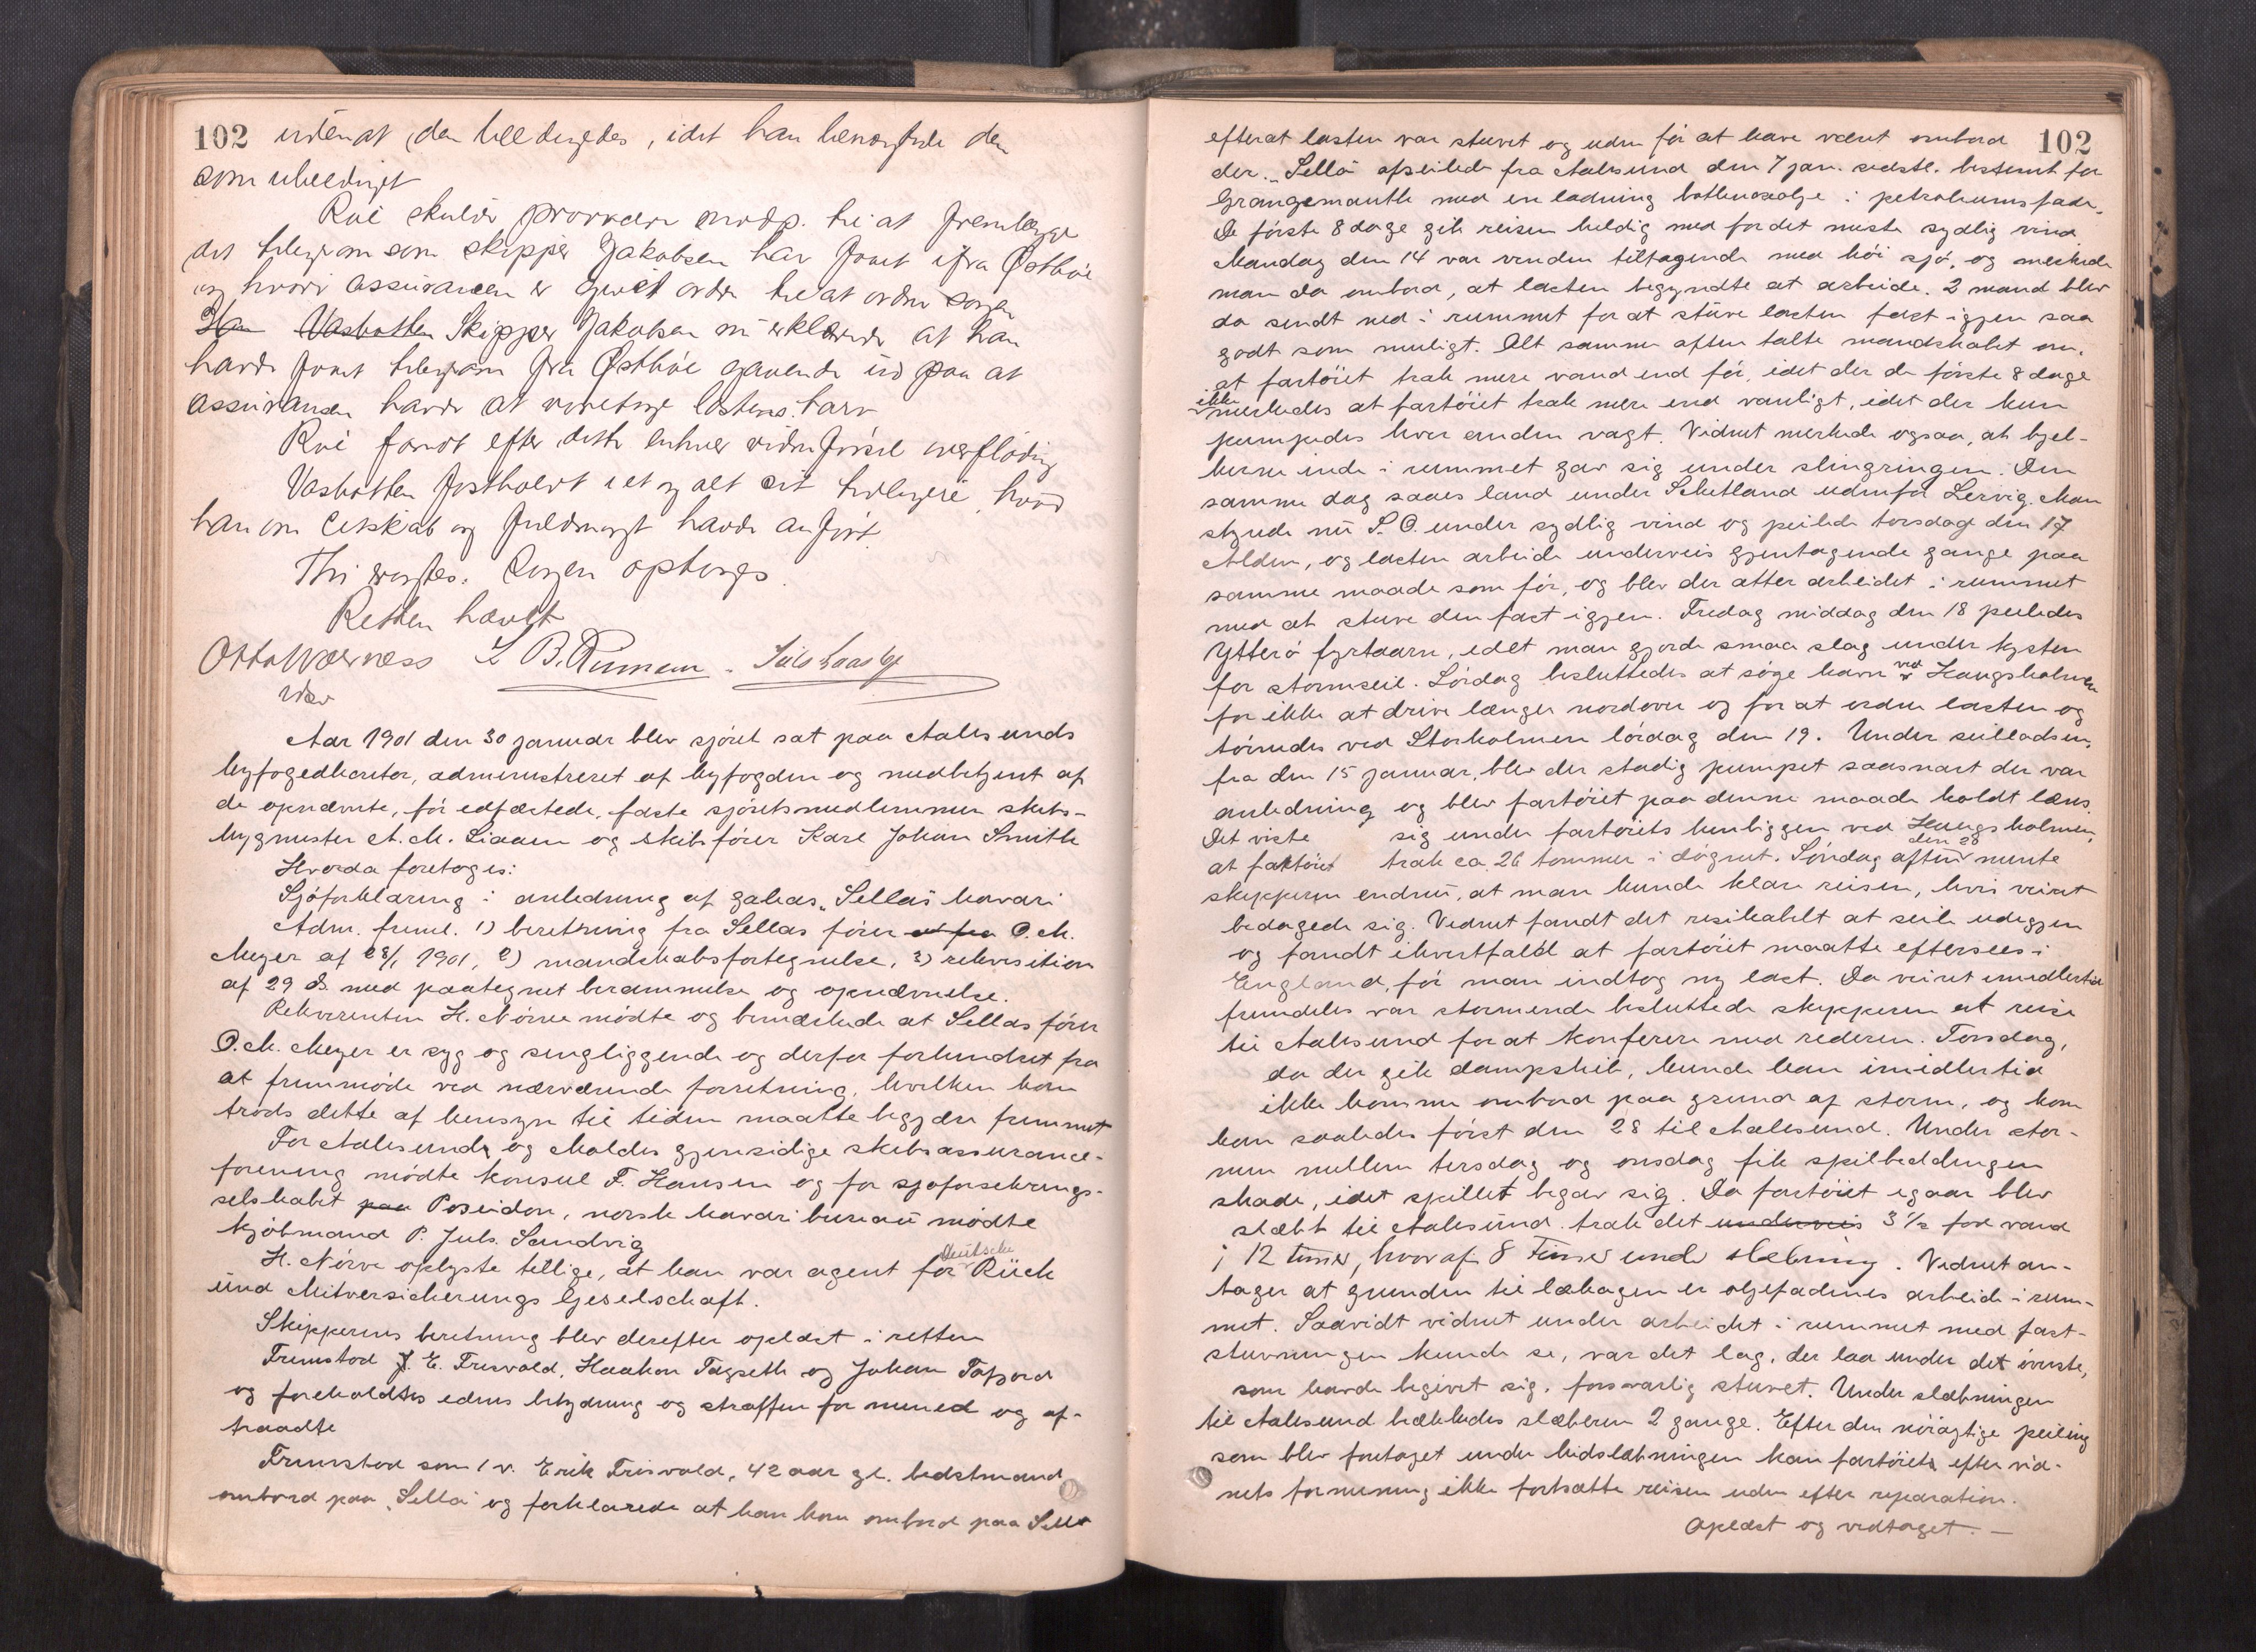 102 udenat den beedigedes, idet han benægtede den
som ubeediget
Roé skulde provocere modp. til at fremlægge
det telegram som skipper Jakobsen har faaet ifra Østbøe
og hvori assurancen er givet ordre til at ordne sagen
Skipper Jakobsen nu erklærede at han
havde faaet telegram fra Østbøe gaaende ud paa at
assurancen havde at varetage lastens tarv
Roé fandt efter dette enhver videre førsel overflødig
Vasbotten fastholdt i et og alt sit tidligere, hvad
han om ledskab og fuldmagt havde anført.
Thi vægtes. Sagen optoges.
Retten hævet
Otto Wærness L B. Rumern
Aar 1901 den 30 januar blev sjöret sat paa Aalesunds
byfogedkontor, administreret af byfogden og medbetjent af
de opnævnte, för edfæstede, faste sjöretsmedlemmer skibs-
bygmester A. M. Liaaen og skibsförer Karl Johan Smith
Hvorda foretoges:
Sjöforklaring i anledning af galeas „Sella's" havari
Adm. freml. 1) beretning fra Sellas förer O. M.
Meyer af 28/1 1901, 2) mandskabsfortegnelse, 3) rekvisition
af 29 ds. med paategnet berammelse og opnævnelse.
Rekvirenten H. Nörve mödte og bemærkede at Sellas förer
O. M. Meyer er syg og sengliggende og derfor forhindret fra
at fremmöde ved nærværende forretning, hvilken han
trods dette af hensyn til tiden maatte begjære fremmet
For Aalesunds og Moldes gjensidige skibsassurance-
forening mödte konsul F. Hansen og for sjøforsikrings-
selskabet paa Poseidon, norsk havari bureau mödte
kjöbmand P. Juls. Sandvig
H. Nörve oplyste tillige, at han var agent for deutsche Rück
und Mitversicherungs Geselschaft.
Skipperens beretning blev derefter oplæst i retten
Fremstod J. E. Frisvold, Haakon Tagseth og Johan Tafjord
og foreholdtes edens betydning og straffen for mened og af-
traadte
Fremstod som 1 v. Erik Frisvold, 42 aar gl. bedstmand
ombord paa „Sella" og forklarede at han kom ombord paa Sella
102
efterat lasten var stuvet og uden för at have været ombord
der. „Sella" afseilede fra Aalesund den 7 jan. sidstl. bestemt for
Grangemauth med en ladning bottlenoseolje i petroleumsfade.
De förste 8 dage gik reisen heldig med for det meste sydlig vind
Mandag den 14 var vinden tiltagende med höi sjö, og merkede
man da ombord, at lasten begyndte at arbeide. 2 mand blev
da sendt ned i rummet for at stuve lasten fast igjen saa
godt som muligt. Alt samme aften talte mandskabet om,
at fartöiet trak mere vand end för, idet der de förste 8 dage
ikke merkedes at fartöiet trak mere end vanligt, idet der kun
pumpedes hver anden vagt. Vidnet merkede ogsaa, at bjel-
kerne inde i rummet gav sig under slingringen. Den
samme dag saaes land under Schetland udenfor Lervig. Man
styrede nu S. O. under sydlig vind og peilede torsdag den 17
Alden, og lasten arbeide underveis gjentagende gange paa
samme maade som för, og blev der atter arbeidet i rummet
med at stuve den fast igjen. Fredag middag den 18 peiledes
Ytterö fyrtaarn, idet man gjorde smaa slag under kysten
for stormseil. Lördag besluttedes at söge havn ved Haugsholmen
for ikke at drive længer nordover og for at ordne lasten og
törnedes ved Storholmen lördag den 19. Under seilladsen,
fra den 15 januar, blev der stadig pumpet saasnart der var
anledning og blev fartöiet paa denne maade holdt læns.
Det viste sig under fartöiets henliggen ved Haugsholmen,
at fartöiet trak ca. 26 tommer i dögnet. Söndag aften den 20 mente
skipperen endnu, at man kunde klare reisen, hvis veiret
bedagede sig. Vidnet fandt det resikabelt at seile udigjen
og fandt ihvertfald at fartöiet maatte eftersees i
England, för man indtog ny last. Da veiret imidlertid
fremdeles var stormende besluttede skipperen at reise
til Aalesund for at konferere med rederen. Torsdag,
da der gik dampskib, kunde han imidlertid
ikke komme ombord paa grund af storm, og kom
han saaledes först den 28 til Aalesund. Under stor-
men mellem tirsdag og onsdag fik spilbeddingen
skade, idet spillet begav sig. Da fartöiet igaar blev
slæbt til Aalesund. trak det underveis 3 1/2 fod vand
i 12 timer, hvoraf 8 timer under slæbning. Vidnet an-
tager at grunden til lækagen er oljefadenes arbeide i rum-
met. Saavidt vidnet under arbeidet i rummet med fast-
stuvningen kunde se, var det lag, der laa under det överste,
som havde begivet sig, forsvarlig stuvet. Under slæbningen
til Aalesund brækkedes slæberen 2 gange. Efter den nöiagtige peiling
som blev foretaget under hidslæbningen kan fartöiet efter vid-
nets formening ikke fortsætte reisen uden efter reparation.
Oplæst og vedtaget. —